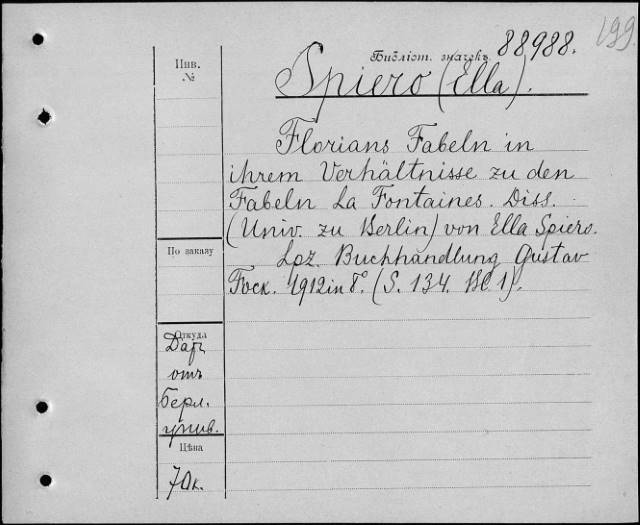 199
Библіот. значекъ 88988.
Инв.
№
Spiero (Ella).
Florians Fabeln in
ihrem Verhältnisse zu den
Fabeln La Fontaines. Diss.
(Univ. zu Berlin) von Ella Spiero.
Lpz. Buchhandlung Gustav
Fock. 1912 in 8°. (S. 134. Bl. 1).
По заказу
Откуда
Даръ
отъ
Берл.
унив.
Цѣна
70к.